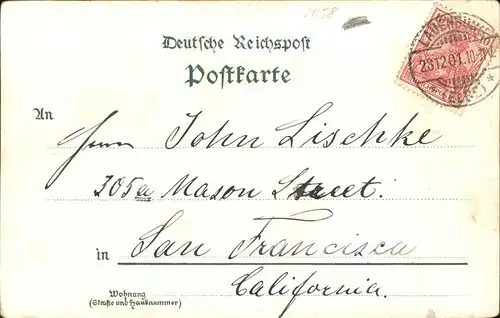 Deutsche Reichspost
Postkarte
An
Herrn John Lischke
305a Mason Street.
in San Francisca
California.
Wohnung
(Straße und Hausnummer)
23 12 01